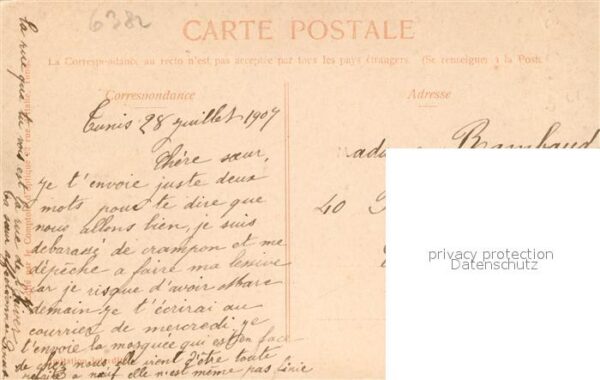 6382
CARTE POSTALE
La Correspondance au recto n'est pas acceptée par tous les pays étrangers. (Se renseigner à la Poste
Correspondance
Adresse
Tunis 28 juillet 1907
Chère sœur,
je t'envoie juste deux
mots pour te dire que
nous allons bien, je suis
debarassé de crampon et me
dépêche a faire ma lessive
car je risque d'avoir
demain je t'écrirai au
courrier de mercredi je
t'envoie la mosquée qui est en face
de chez nous elle vient d'être toute
a neuf elle n'est même pas finie
la rue que tu vois est la rue de
ta sœur affectionnée
Rambaud
40
privacy protection
Datenschutz